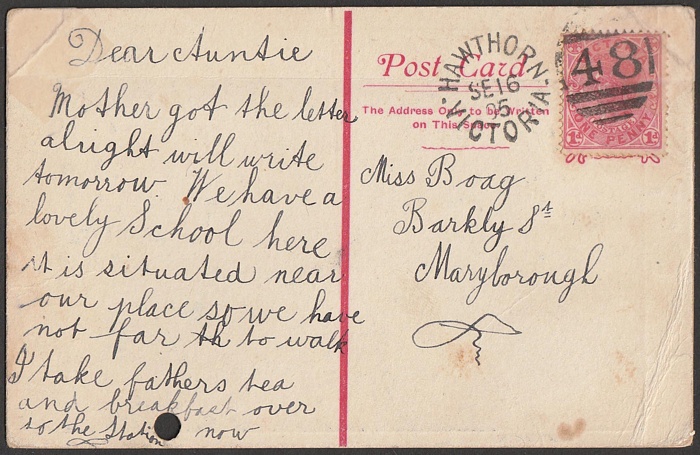 Dear Auntie
Mother got the letter
alright will write
tomorrow. We have a
lovely School here
it is situated near
our place so we have
not far th to walk
I take fathers tea
and breakfast over
to the Station now
Post Card
The Address Only to be Written
on This Side
HAWTHORN
SE 16
05
VICTORIA
481
POSTAGE
ONE PENNY
1d 1d
Miss Boag
Barkly St
Maryborough